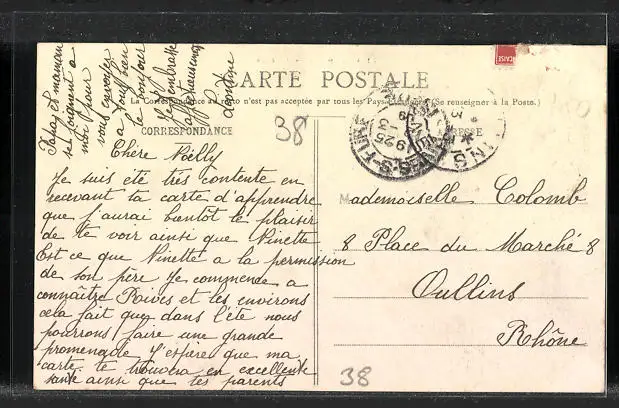 CARTE POSTALE
La Correspondance au recto n'est pas acceptée par tous les Pays étrangers (Se renseigner à la Poste.)
CORRESPONDANCE
38
Chère Noëlly
Je suis été très contente en
recevant ta carte d'apprendre
que j'aurai bientôt le plaisir
de te voir ainsi que Ninette
Est ce que Ninette a la permission
de son père Je commence a
connaître Rives et les environs
cela fait que dans l'été nous
pourrons faire une grande
promenade J'espère que ma
carte te trouvera en excellente
santé ainsi que tes parents
Papa et maman
se joignent a
moi pour
vous envoyer
a tous bien
le bonjour
Je t'embrasse
affectueusement
Mademoiselle Colomb
8 Place du Marché 8
Oullins
Rhône
38